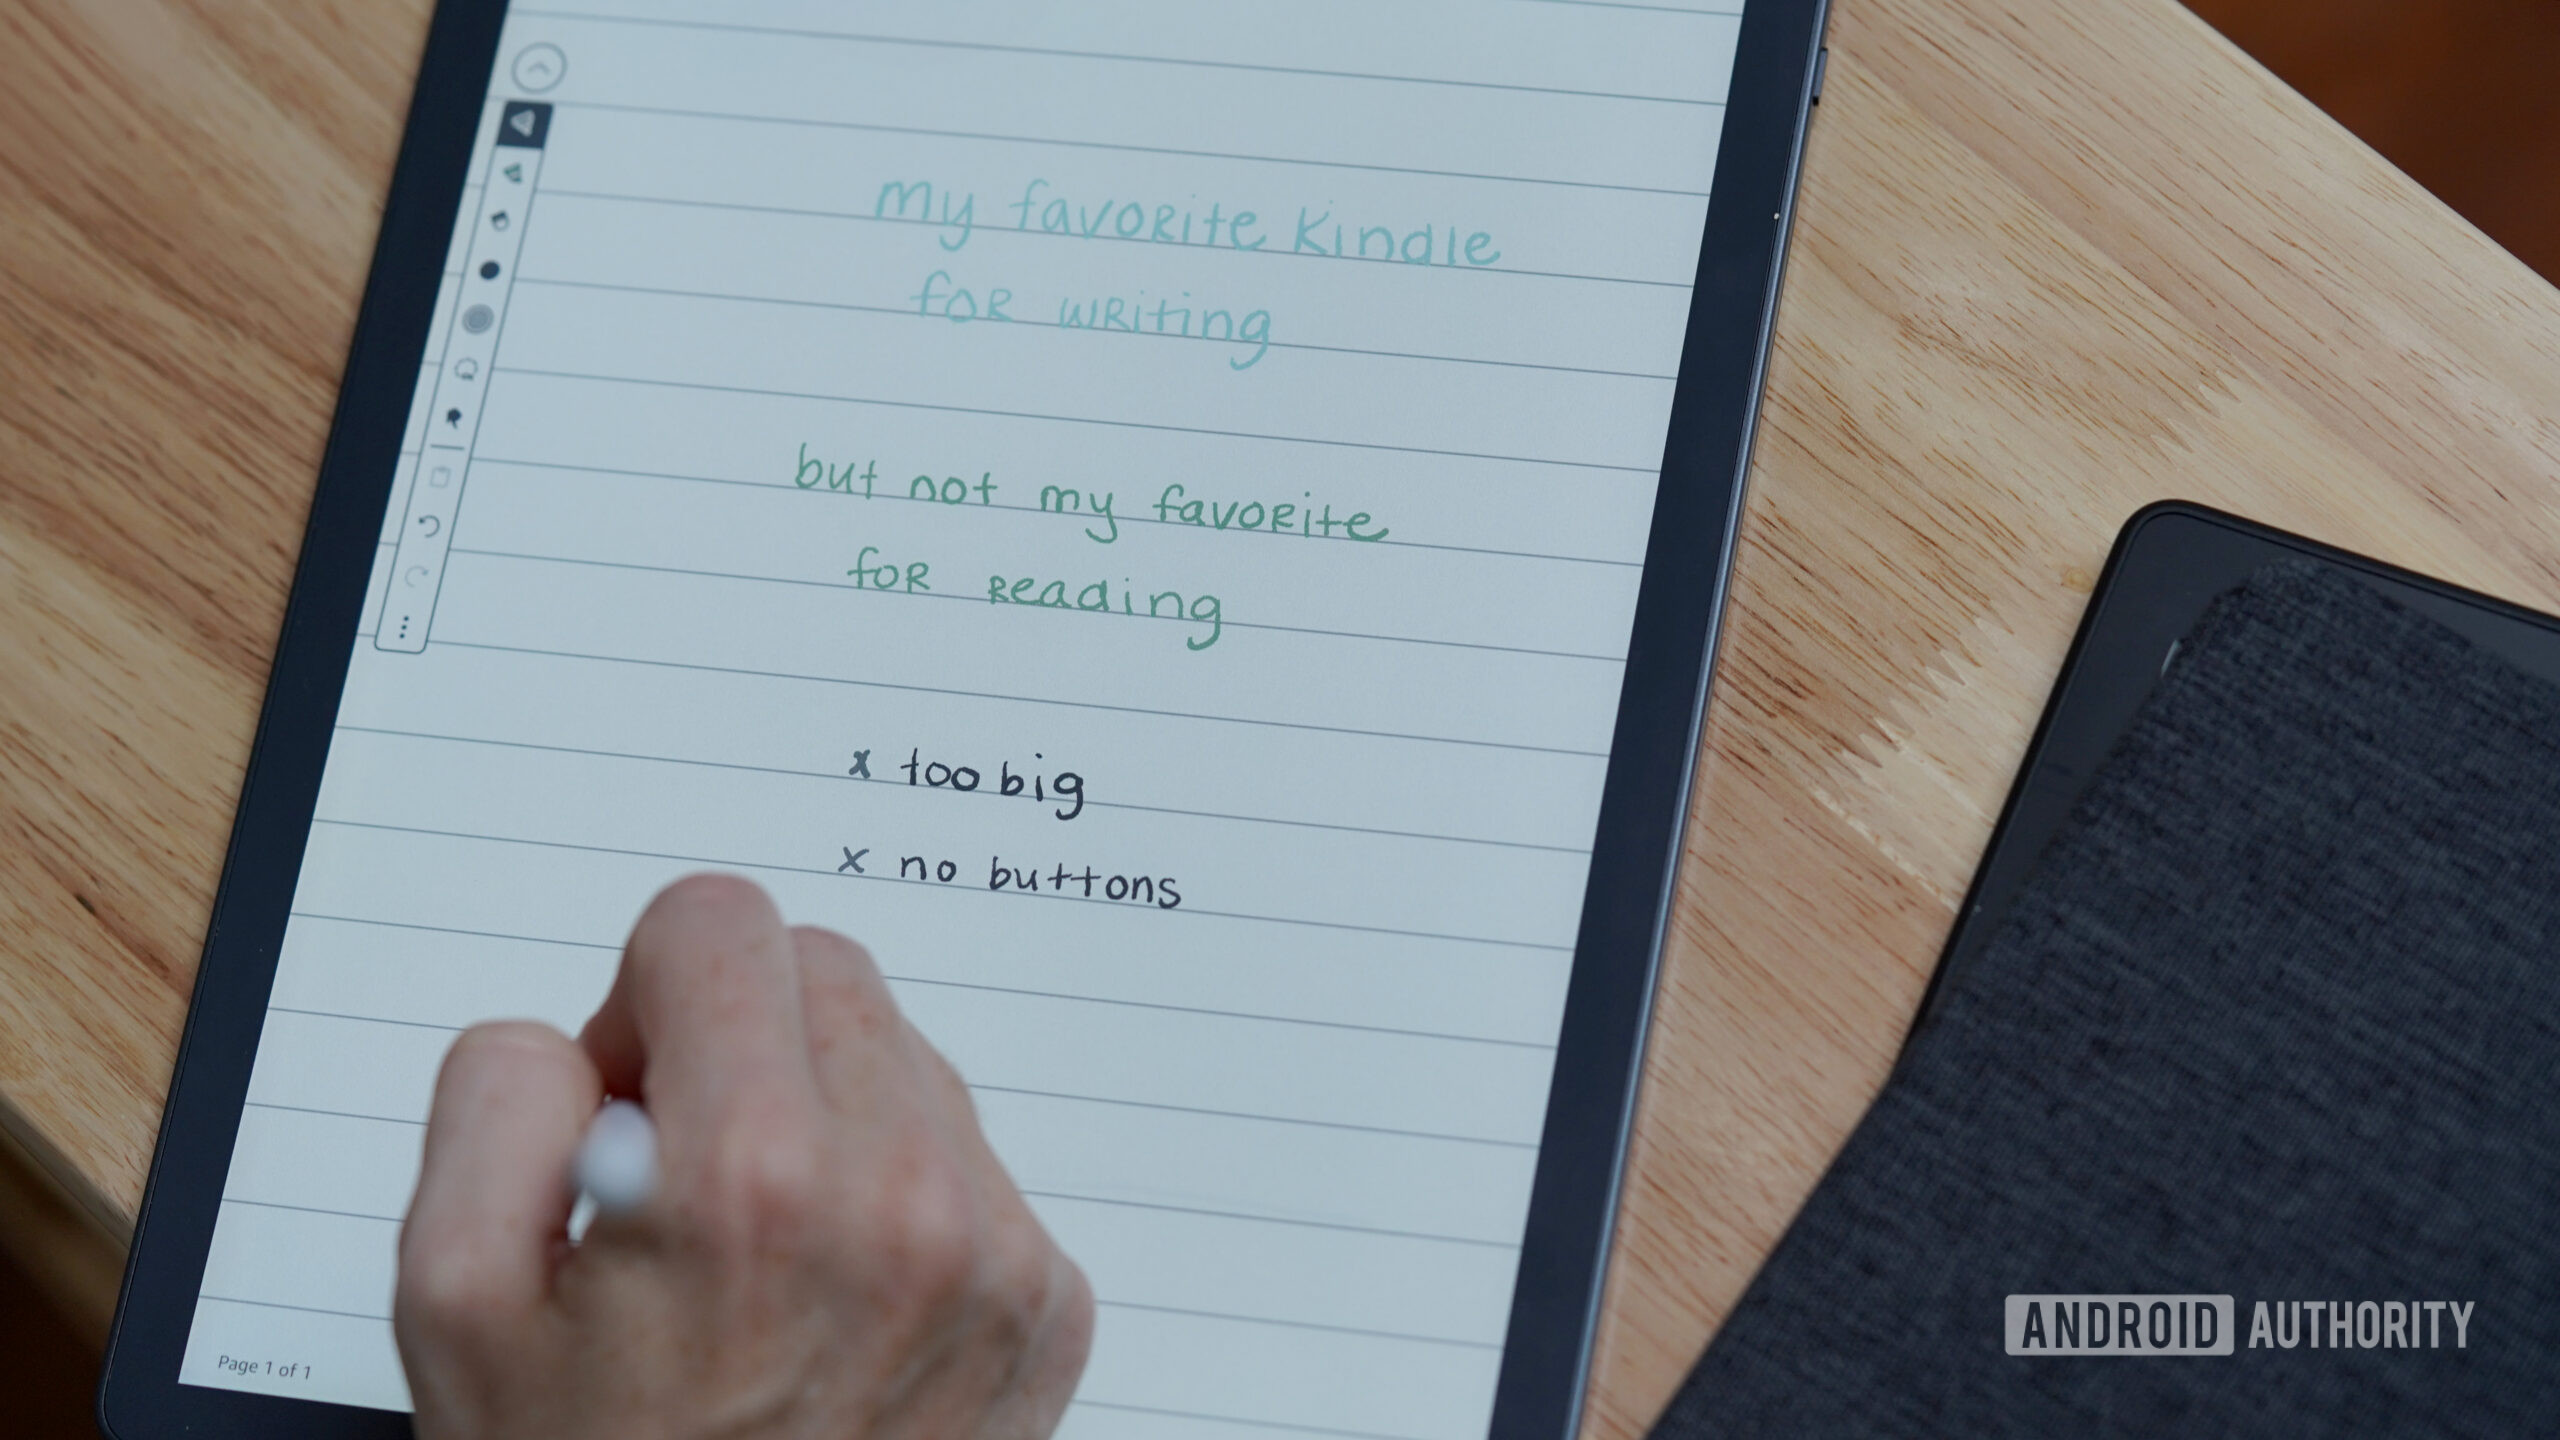 my favorite Kindle
for writing
but not my favorite
for reading
x too big
x no buttons
Page 1 of 1
ANDROID AUTHORITY